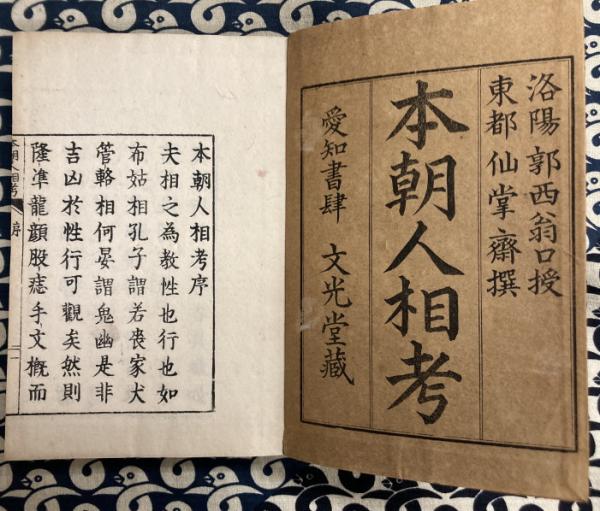 洛陽 郭西翁口授
東都 仙掌齋撰
本朝人相考
愛知書肆 文光堂藏
本朝人相考序
夫相之為教性也行也如
布姑相孔子謂若喪家犬
管輅相何晏謂鬼幽是非
吉凶於性行可觀矣然則
隆準龍顏股痣手文概而
本朝人相考 序 一